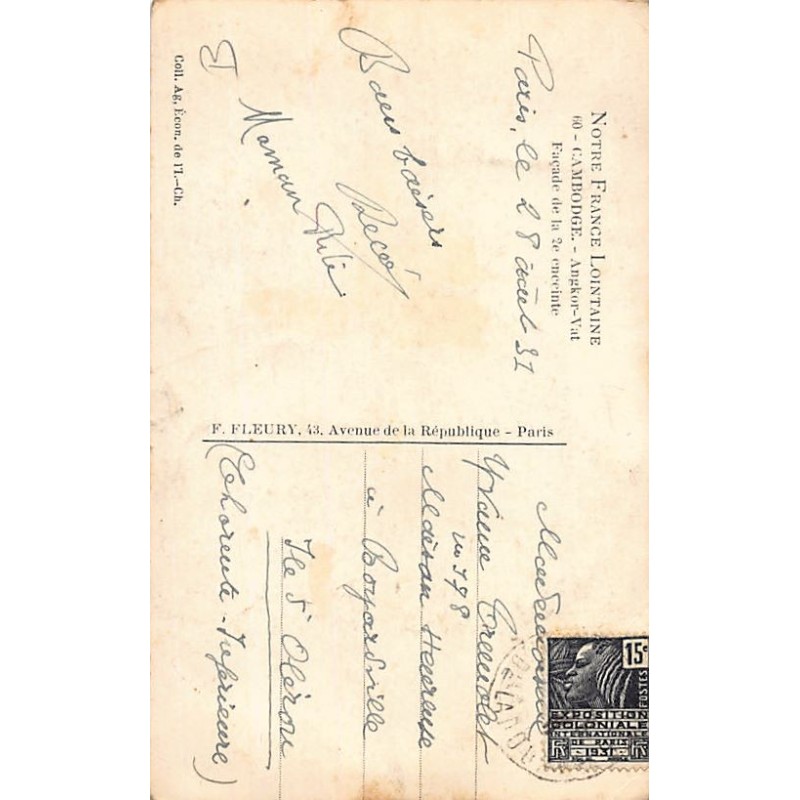 NOTRE FRANCE LOINTAINE
60 - CAMBODGE. - Angkor-Vat
Façade de la 2e enceinte
Paris, le 28 août 31
Bons baisers
Maman
Coll. Ag. Écon. de l'I.-Ch.
F. FLEURY, 43, Avenue de la République - Paris
Mademoiselle
Yvonne
n° 198
Maison Heureuse
à Boyardville
Ile d'Oléron
(Charente-Inférieure)
15c
POSTES
EXPOSITION
COLONIALE
INTERNATIONALE
DE PARIS
1931